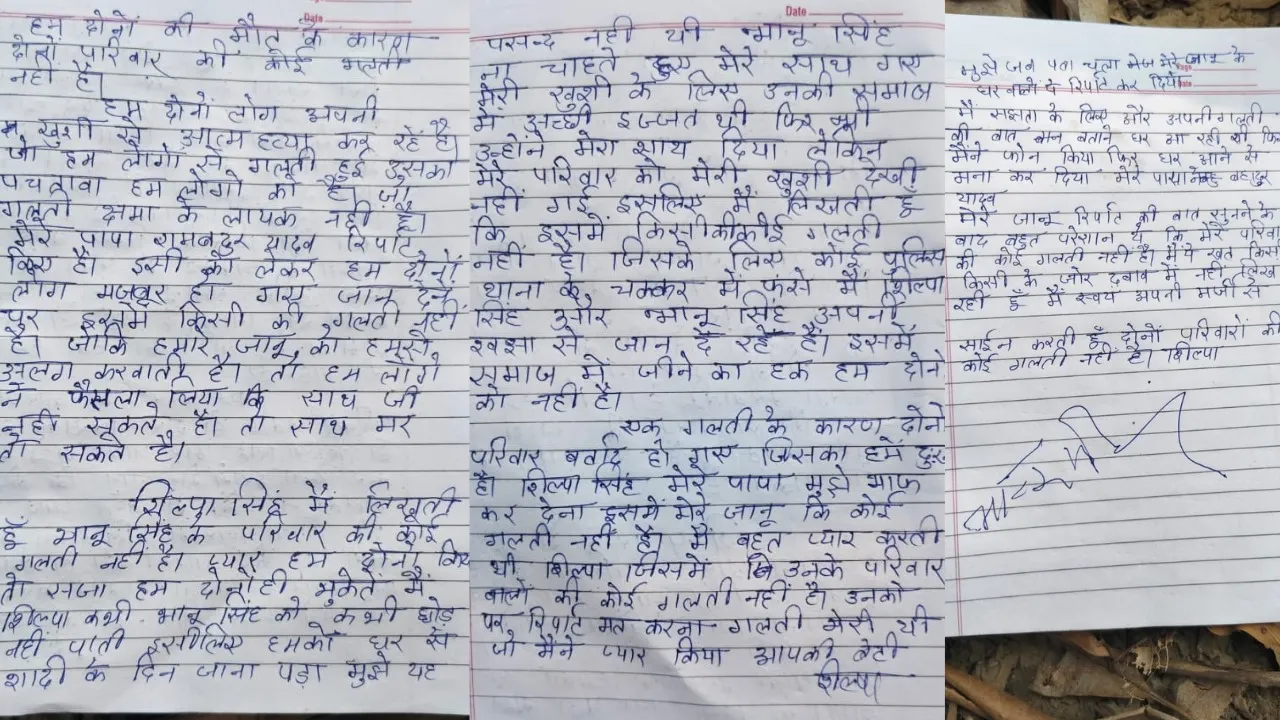 Date
हम दोनों की मौत के कारण
दोनों परिवार की कोई गलती
नहीं है।
हम दोनों लोग अपनी
खुशी से आत्महत्या कर रहे है।
जो हम लोगो से गलती हुई उसका
पचतावा हम लोगो को है। जो
गलती क्षमा के लायक नहीं है।
मेरे पापा रामबहदुर यादव रिपोर्ट
किए है। इसी को लेकर हम दोनों
लोग मजबूर हो गए जान देने
पर इसमें किसी की गलती नहीं
है। जोकि हमारे जानू को हमसे
अलग करवाती है। तो हम लोगो
ने फैसला लिया कि साथ जी
नहीं सकते है। तो साथ मर
तो सकते है।
शिल्पा सिंह मैं लिखती
हूँ भानू सिंह के परिवार की कोई
गलती नहीं है। प्यार हम दोनो किए
तो सजा हम दोनो ही भुकेते मैं
शिल्पा कभी भानू सिंह को कभी छोड़
नहीं पाती इसीलिए हमको घर से
शादी के दिन जाना पड़ा मुझे यह
Date
पसन्द नहीं थी भानू सिंह
ना चाहते हुए मेरे साथ गए
मेरी खुशी के लिए उनकी समाज
में अच्छी इज्जत थी फिर भी
उन्होने मेरा साथ दिया लेकिन
मेरे परिवार को मेरी खुशी देखी
नहीं गई इसलिए मैं लिखती हूँ
कि इसमें किसी की कोई गलती
नहीं है। जिसके लिए कोई पुलिस
थाना के चक्कर में फंसे मैं शिल्पा
सिंह और भानू सिंह अपनी
से जान दे रहे है। इसमें
समाज में जीने का हक हम दोनो
को नहीं है।
एक गलती के कारण दोनो
परिवार बर्वाद हो गए जिसका हमें दुःख
है। शिल्पा सिंह मेरे पापा मुझे माफ
कर देना इसमें मेरे जानू कि कोई
गलती नहीं है। मैं बहुत प्यार करती
थी शिल्पा जिसमें उनके परिवार
वालो की कोई गलती नहीं है। उनको
पर रिपोर्ट मत करना गलती मेरी थी
जो मैंने प्यार किया आपकी बेटी
शिल्पा
मुझे जब पता चला मेरे जानू के
घर वालो पे रिपोर्ट कर दिया
मैं के लिए और अपनी गलती
की बात बताने घर आ रही थी फिर
मैंने फोन किया फिर घर आने से
मना कर दिया मेरे पापा बहादुर
यादव
मेरे जानू रिपोर्ट की बात सुनने के
बाद बहुत परेशान थे कि मेरे परिवार
की कोई गलती नहीं है। मैं ये खत किसी
किसी के जोर दवाब में नहीं लिख
रही हूँ मैं स्वयं अपनी मर्जी से
साईन करती हूँ दोनों परिवारों की
कोई गलती नहीं है। शिल्पा